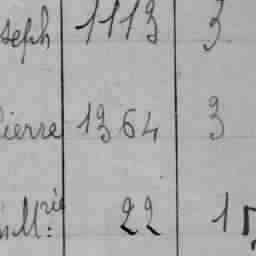 seph 1113 3
Pierre 1364 3
M.rie 22 1